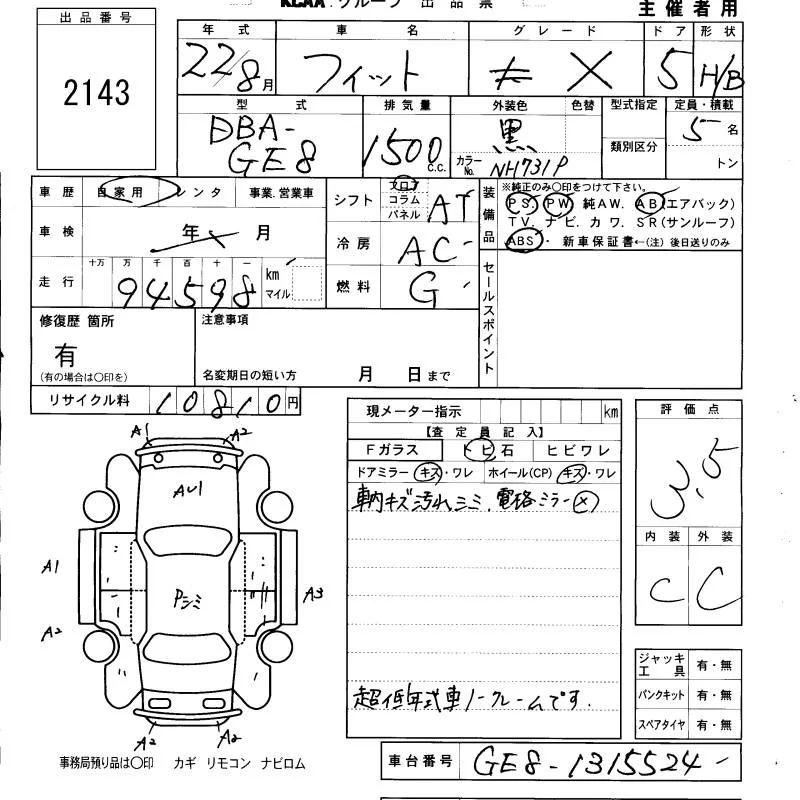 KCAA グループ 出品票
主催者用
出品番号
2143
年式 車名 グレード ドア 形状
22/8月 フィット X 5 H/B
型式 排気量 外装色 色替 型式指定 定員・積載
類別区分
DBA-GE8 1500c.c. 黒 カラーNo. NH731P 5名
トン
車歴 自家用 レンタ 事業.営業車
シフト フロア コラム パネル AT
装備品 ※純正のみ〇印をつけて下さい。
PS. PW 純AW. AB(エアバック)
TV. ナビ. カワ. SR(サンルーフ)
ABS・ 新車保証書←(注) 後日送りのみ
車検 年 月
冷房 AC
走行 十万 万 千 百 十 一 km マイル
94598
燃料 G
セールスポイント
修復歴 箇所
有
(有の場合は〇印を)
注意事項
名変期日の短い方 月 日まで
リサイクル料 10810円
現メーター指示 km
【査定員記入】
Fガラス トビ石 ヒビワレ
ドアミラー キズ・ワレ ホイール(CP) キズ・ワレ
車内キズ汚れシミ、電格ミラー×
超低年式車ノークレームです.
評価点
3.5
内装 外装
C C
A1 A2
AU1
A1
Pシミ
A3
A2
A2 A2
ジャッキ工具 有・無
パンクキット 有・無
スペアタイヤ 有・無
事務局預り品は〇印 カギ リモコン ナビロム
車台番号 GE8-1315524